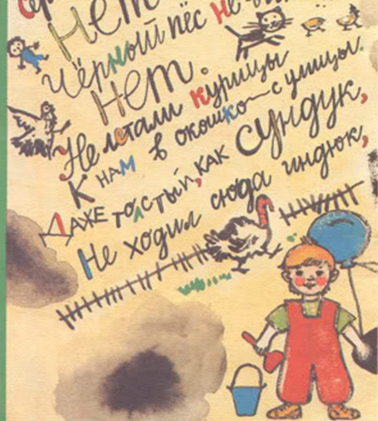 Нет
Чёрный пёс не
Нет.
Не летали курицы
К нам в окошко — с улицы.
Даже толстый, как сундук,
Не ходил сюда индюк,